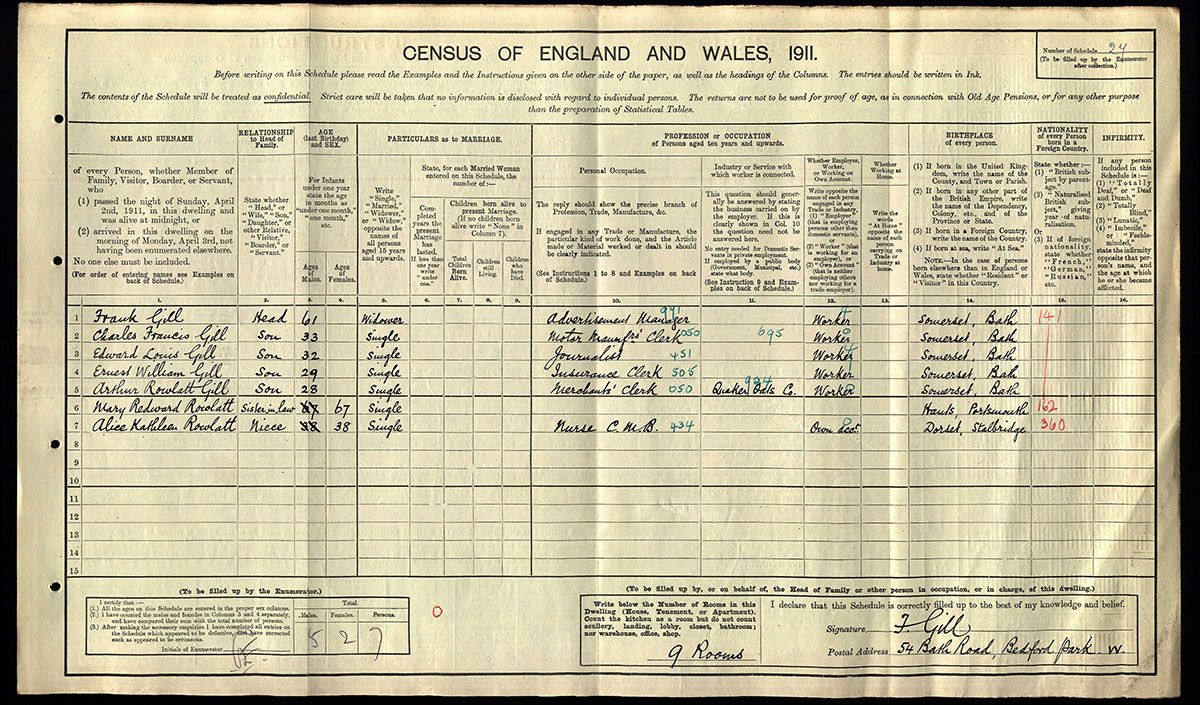 CENSUS OF ENGLAND AND WALES, 1911.
Number of Schedule 24
(To be filled up by the Enumerator
after collection.)
Before writing on this Schedule please read the Examples and the Instructions given on the other side of the paper, as well as the headings of the Columns. The entries should be written in Ink.
The contents of the Schedule will be treated as confidential. Strict care will be taken that no information is disclosed with regard to individual persons. The returns are not to be used for proof of age, as in connection with Old Age Pensions, or for any other purpose
than the preparation of Statistical Tables.
NAME AND SURNAME
of every Person, whether Member of
Family, Visitor, Boarder, or Servant,
who
(1) passed the night of Sunday, April
2nd, 1911, in this dwelling and
was alive at midnight, or
(2) arrived in this dwelling on the
morning of Monday, April 3rd, not
having been enumerated elsewhere.
No one else must be included.
(For order of entering names see Examples on
back of Schedule.)
RELATIONSHIP
to Head of
Family.
State whether
"Head," or
"Wife," "Son,"
"Daughter," or
other Relative,
"Visitor,"
"Boarder," or
"Servant."
AGE
(last Birthday)
and SEX.
For Infants
under one year
state the age
in months as
"under one month,"
"one month,"
etc.
Ages
of
Males.
Ages
of
Females.
PARTICULARS as to MARRIAGE.
Write
"Single,"
"Married,"
"Widower,"
or "Widow,"
opposite the
names of
all persons
aged 15 years
and upwards.
State, for each Married Woman
entered on this Schedule, the
number of:—
Completed
years the
present
Marriage
has
lasted.
If less than
one year
write
"under
one."
Children born alive to
present Marriage.
(If no children born
alive write "None" in
Column 7).
Total
Children
Born
Alive.
Children
still
Living.
Children
who
have
Died.
PROFESSION or OCCUPATION
of Persons aged ten years and upwards.
Personal Occupation.
The reply should show the precise branch of
Profession, Trade, Manufacture, &c.
If engaged in any Trade or Manufacture, the
particular kind of work done, and the Article
made or Material worked or dealt in should
be clearly indicated.
(See Instructions 1 to 8 and Examples on back
of Schedule.)
Industry or Service with
which worker is connected.
This question should gener-
ally be answered by stating
the business carried on by
the employer. If this is
clearly shown in Col. 10
the question need not be
answered here.
No entry needed for Domestic Ser-
vants in private employment.
If employed by a public body
(Government, Municipal, etc.)
state what body.
(See Instruction 9 and Exam-
ples on back of Schedule.)
Whether Employer,
Worker,
or Working on
Own Account.
Write opposite the
name of each person
engaged in any
Trade or Industry,
(1) "Employer"
(that is employing
persons other than
domestic servants),
or
(2) "Worker" (that
is working for an
employer), or
(3) "Own Account"
(that is neither
employing others
nor working for a
trade employer).
Whether
Working at
Home.
Write the
words
"At Home"
opposite the
name of each
person
carrying on
Trade or
Industry at
home.
BIRTHPLACE
of every person.
(1) If born in the United King-
dom, write the name of the
County, and Town or Parish.
(2) If born in any other part of
the British Empire, write
the name of the Dependency,
Colony, etc., and of the
Province or State.
(3) If born in a Foreign Country,
write the name of the Country.
(4) If born at sea, write "At Sea."
NOTE.—In the case of persons
born elsewhere than in England or
Wales, state whether "Resident" or
"Visitor" in this Country.
NATIONALITY
of every Person
born in a
Foreign Country.
State whether:—
(1) "British sub-
ject by parent-
age."
(2) "Naturalised
British sub-
ject," giving
year of natu-
ralisation.
Or
(3) If of foreign
nationality,
state whether
"French,"
"German,"
"Russian,"
etc.
INFIRMITY.
If any person
included in this
Schedule is:—
(1) "Totally
Deaf," or "Deaf
and Dumb,"
(2) "Totally
Blind,"
(3) "Lunatic,"
(4) "Imbecile,"
or "Feeble-
minded,"
state the infirmity
opposite that per-
son's name, and
the age at which
he or she became
afflicted.
1. 2. 3. 4. 5. 6. 7. 8. 9. 10. 11. 12. 13. 14. 15. 16.
1 Frank Gill Head 61 Widower Advertisement Manager 971 Worker Somerset, Bath 141
2 Charles Francis Gill Son 33 Single Motor Manufrs' Clerk 050 695 Worker Somerset, Bath
3 Edward Louis Gill Son 32 Single Journalist 451 Worker Somerset, Bath
4 Ernest William Gill Son 29 Single Insurance Clerk 505 Worker Somerset, Bath
5 Arthur Rowlatt Gill Son 28 Single Merchants' Clerk 050 Quaker Oats C. Worker Somerset, Bath
6 Mary Redward Rowlatt Sister in law 67 67 Single Hants, Portsmouth 162
7 Alice Kathleen Rowlatt Niece 38 38 Single Nurse C.M.B. 434 Own acct Dorset, Stalbridge 360
8
9
10
11
12
13
14
15
(To be filled up by the Enumerator.)
I certify that:—
(1.) All the ages on this Schedule are entered in the proper sex columns.
(2.) I have counted the males and females in Columns 3 and 4 separately,
and have compared their sum with the total number of persons.
(3.) After making the necessary enquiries I have completed all entries on
the Schedule which appeared to be defective, and have corrected
such as appeared to be erroneous.
Initials of Enumerator
Total.
Males. Females. Persons.
5 2 7
0
(To be filled up by, or on behalf of, the Head of Family or other person in occupation, or in charge, of this dwelling.)
Write below the Number of Rooms in this
Dwelling (House, Tenement, or Apartment).
Count the kitchen as a room but do not count
scullery, landing, lobby, closet, bathroom;
nor warehouse, office, shop.
9 Rooms
I declare that this Schedule is correctly filled up to the best of my knowledge and belief.
Signature F. Gill
Postal Address 54 Bath Road, Bedford Park. W.